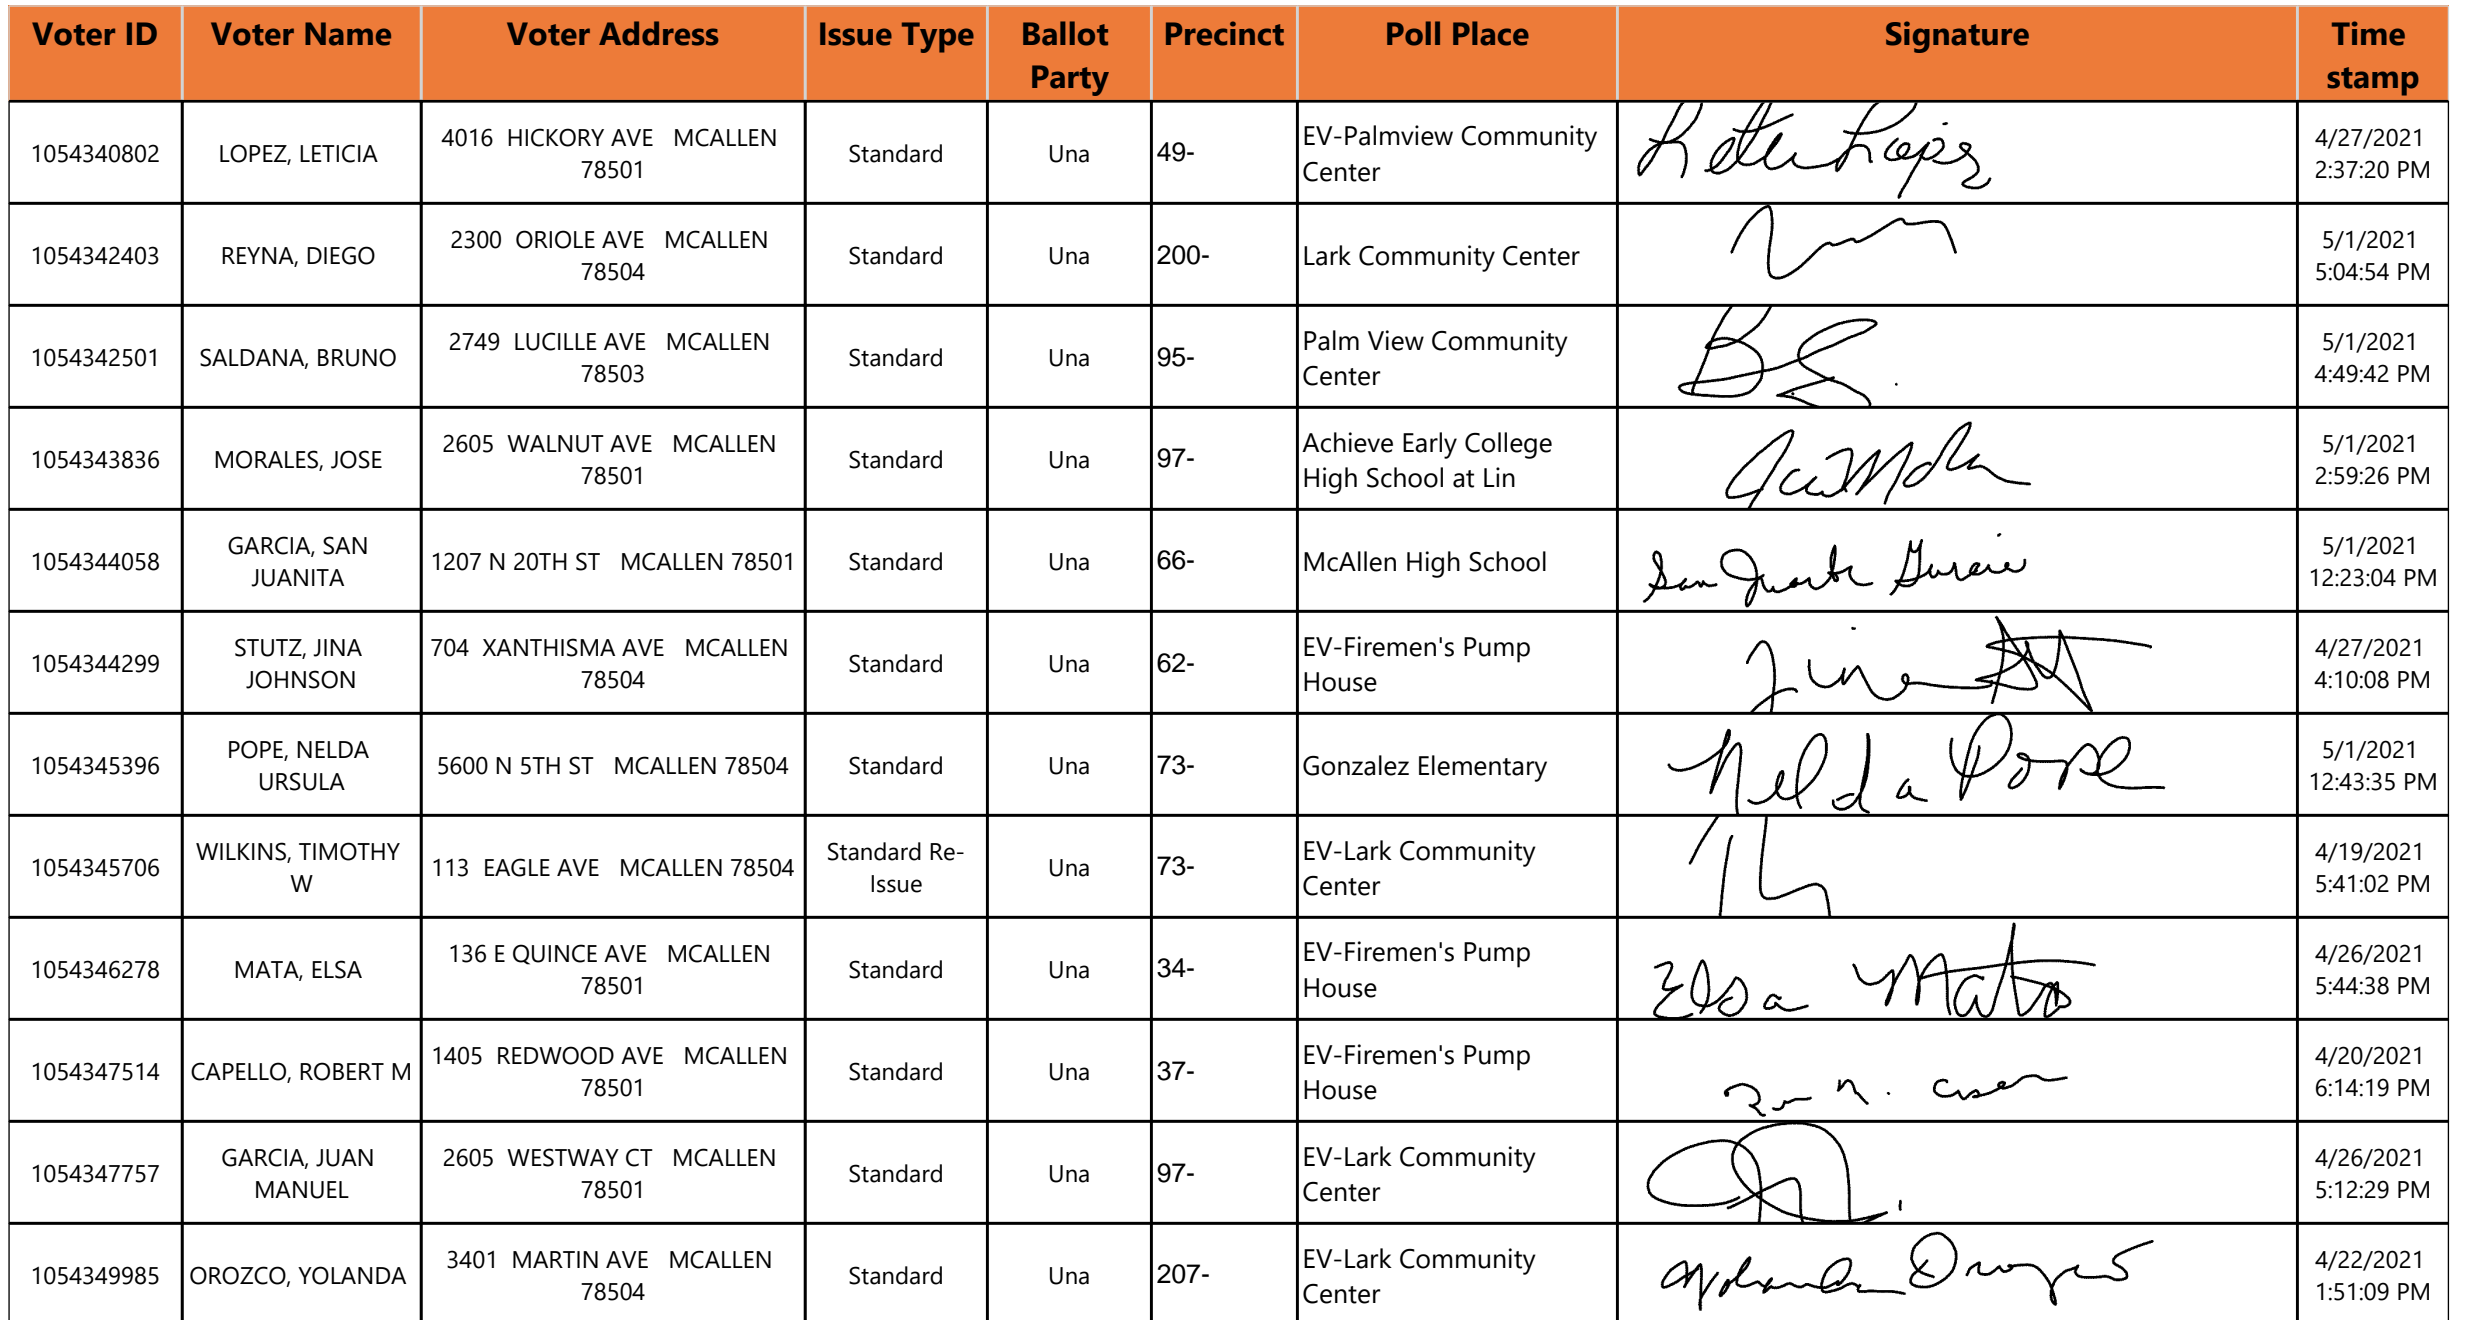 Voter ID Voter Name Voter Address Issue Type Ballot Party Precinct Poll Place Signature Time stamp
1054340802 LOPEZ, LETICIA 4016 HICKORY AVE MCALLEN 78501 Standard Una 49- EV-Palmview Community Center Lopez 4/27/2021 2:37:20 PM
1054342403 REYNA, DIEGO 2300 ORIOLE AVE MCALLEN 78504 Standard Una 200- Lark Community Center 5/1/2021 5:04:54 PM
1054342501 SALDANA, BRUNO 2749 LUCILLE AVE MCALLEN 78503 Standard Una 95- Palm View Community Center 5/1/2021 4:49:42 PM
1054343836 MORALES, JOSE 2605 WALNUT AVE MCALLEN 78501 Standard Una 97- Achieve Early College High School at Lin 5/1/2021 2:59:26 PM
1054344058 GARCIA, SAN JUANITA 1207 N 20TH ST MCALLEN 78501 Standard Una 66- McAllen High School San Juanita Garcia 5/1/2021 12:23:04 PM
1054344299 STUTZ, JINA JOHNSON 704 XANTHISMA AVE MCALLEN 78504 Standard Una 62- EV-Firemen's Pump House Jina 4/27/2021 4:10:08 PM
1054345396 POPE, NELDA URSULA 5600 N 5TH ST MCALLEN 78504 Standard Una 73- Gonzalez Elementary Nelda Pope 5/1/2021 12:43:35 PM
1054345706 WILKINS, TIMOTHY W 113 EAGLE AVE MCALLEN 78504 Standard Re-Issue Una 73- EV-Lark Community Center 4/19/2021 5:41:02 PM
1054346278 MATA, ELSA 136 E QUINCE AVE MCALLEN 78501 Standard Una 34- EV-Firemen's Pump House Elsa Mata 4/26/2021 5:44:38 PM
1054347514 CAPELLO, ROBERT M 1405 REDWOOD AVE MCALLEN 78501 Standard Una 37- EV-Firemen's Pump House 4/20/2021 6:14:19 PM
1054347757 GARCIA, JUAN MANUEL 2605 WESTWAY CT MCALLEN 78501 Standard Una 97- EV-Lark Community Center 4/26/2021 5:12:29 PM
1054349985 OROZCO, YOLANDA 3401 MARTIN AVE MCALLEN 78504 Standard Una 207- EV-Lark Community Center Yolanda Orozco 4/22/2021 1:51:09 PM